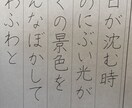 日が沈む時
のにぶい光が
くの景色を
んなぼかして
わふわと